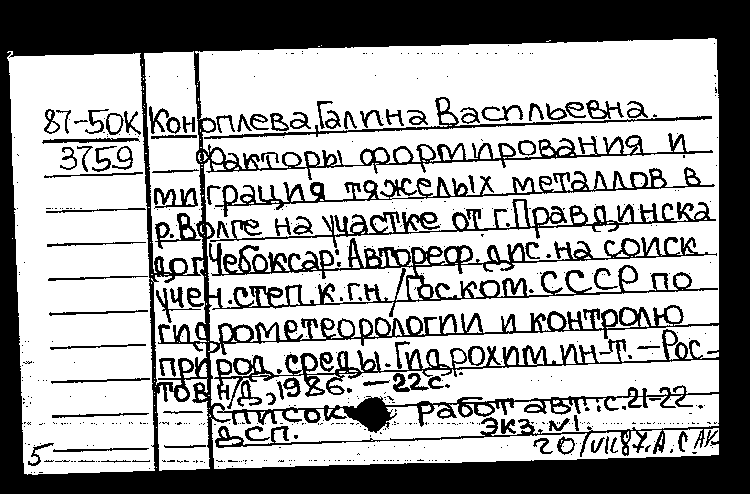 87-50К Коноплева, Галина Васильевна.
3759 Факторы формирования и
миграция тяжелых металлов в
р. Волге на участке от г. Правдинска
до г. Чебоксар: Автореф. дис. на соиск
учен. степ. к.г.н. / Гос. ком. СССР по
гидрометеорологии и контролю
природ. среды. Гидрохим. ин-т. — Рос-
тов н/Д, 1986. — 22 с.
Список работ авт.: с. 21-22.
ДСП. Экз. №1.
5 20/VII 87. А.С.